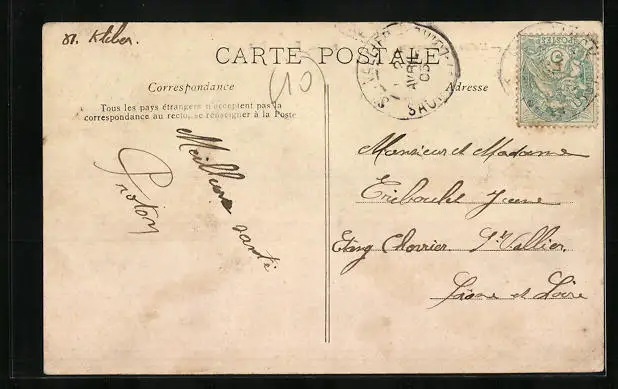 Kleber.
CARTE POSTALE
10
Correspondance
Adresse
Tous les pays étrangers n'acceptent pas la
correspondance au recto, se renseigner à la Poste
AVRIL
05
POSTES
Meilleure santé
Proton
Monsieur et Madame
Triboulet Jeune
Etang Chovrier St Vallier.
Saône et Loire